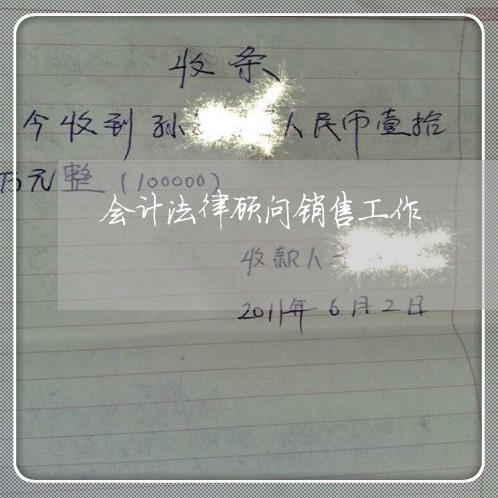 收条
今收到孙 人民币壹拾
万元整(100000)
会计法律顾问销售工作
收款人
2011年6月2日